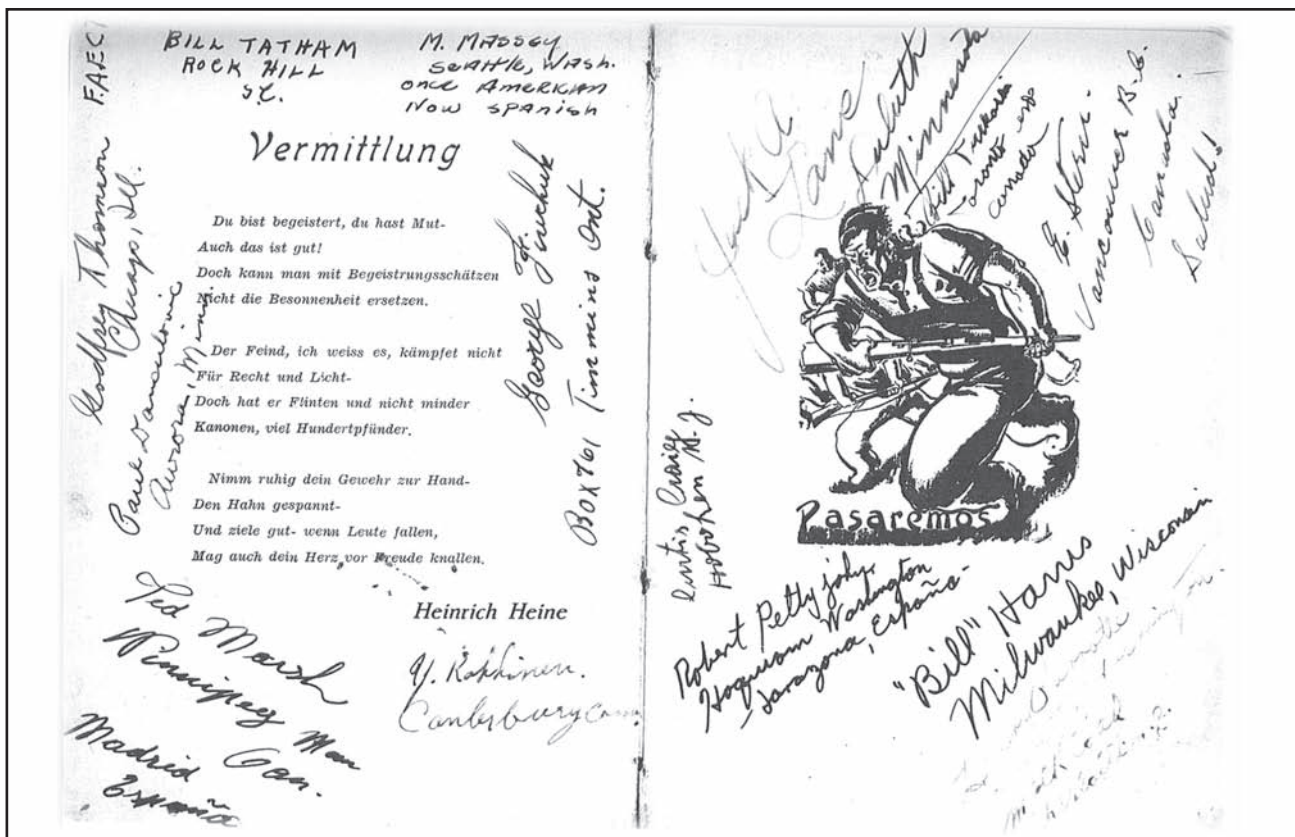 F.A.E.C.
BILL TATHAM
ROCK HILL
S.C.
M. MASSEY
SEATTLE, WASH.
ONCE AMERICAN
NOW SPANISH
Vermittlung
Du bist begeistert, du hast Mut-
Auch das ist gut!
Doch kann man mit Begeistrungsschätzen
Nicht die Besonnenheit ersetzen.
Der Feind, ich weiss es, kämpfet nicht
Für Recht und Licht-
Doch hat er Flinten und nicht minder
Kanonen, viel Hundertpfünder.
Nimm ruhig dein Gewehr zur Hand-
Den Hahn gespannt-
Und ziele gut- wenn Leute fallen,
Mag auch dein Herz vor Freude knallen.
Heinrich Heine
Godfrey Thomson
Chicago, Ill.
Aurora, Minn
George
Box 761 Timmins Ont.
Ted Marsh
Winnipeg Man
Can.
Madrid
España
Y. Kokkinen.
Jack A
Lane
Duluth
Minnesota
Bill
Toronto
Canada
E. Stern-
Vancouver B.C.
Canada.
Salud!
Pasaremos
Craig
Hoboken N.J.
Robert Pettyjohn
Hoquiam Washington
-Tarazona, España-
"Bill" Harris
Milwaukee, Wisconsin